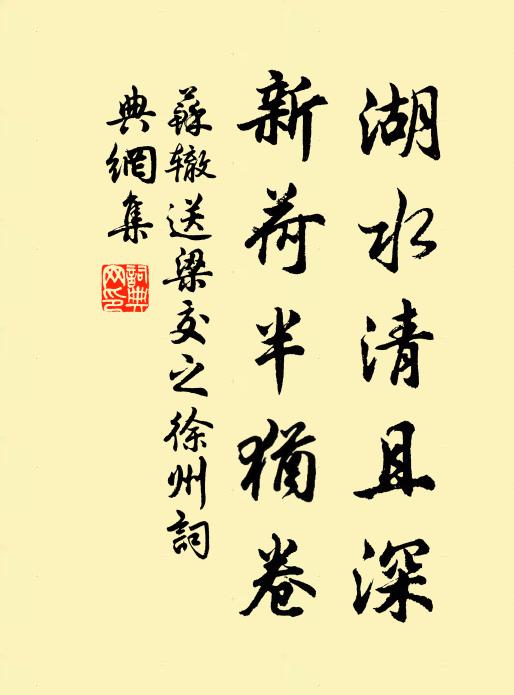 湖水清且深
新荷半猶卷
蘇辙送梁交之徐州詞
典網集
詞典
网印